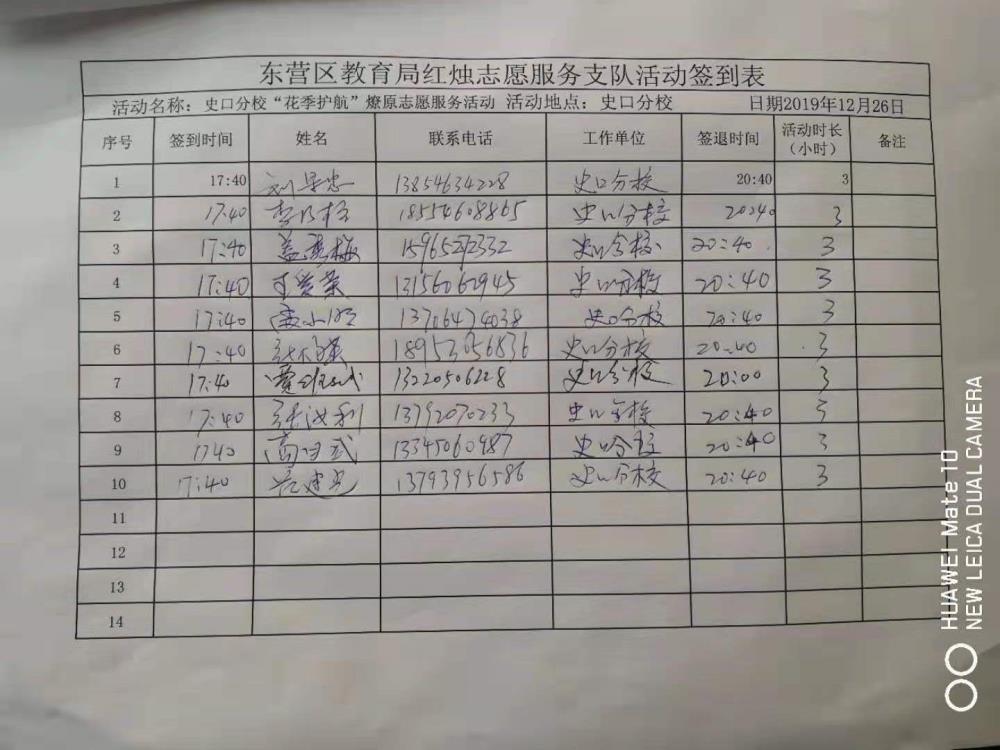 东营区教育局红烛志愿服务支队活动签到表
活动名称：史口分校“花季护航”燎原志愿服务活动 活动地点：史口分校 日期2019年12月26日
序号 签到时间 姓名 联系电话 工作单位 签退时间 活动时长（小时） 备注
1 17:40 13854634228 史口分校 20:40 3
2 17:40 18554608865 史口分校 20:40 3
3 17:40 盖秀梅 15965292332 史口分校 20:40 3
4 17:40 13156062945 史口分校 20:40 3
5 17:40 13706474038 史口分校 20:40 3
6 17:40 18953056836 史口分校 20:40 3
7 17:40 13220506228 史口分校 20:00 3
8 17:40 13792070233 史口分校 20:40 3
9 1740 13345060987 史口分校 20:40 3
10 17:40 13793956586 史口分校 20:40 3
11
12
13
14
HUAWEI Mate 10
NEW LEICA DUAL CAMERA